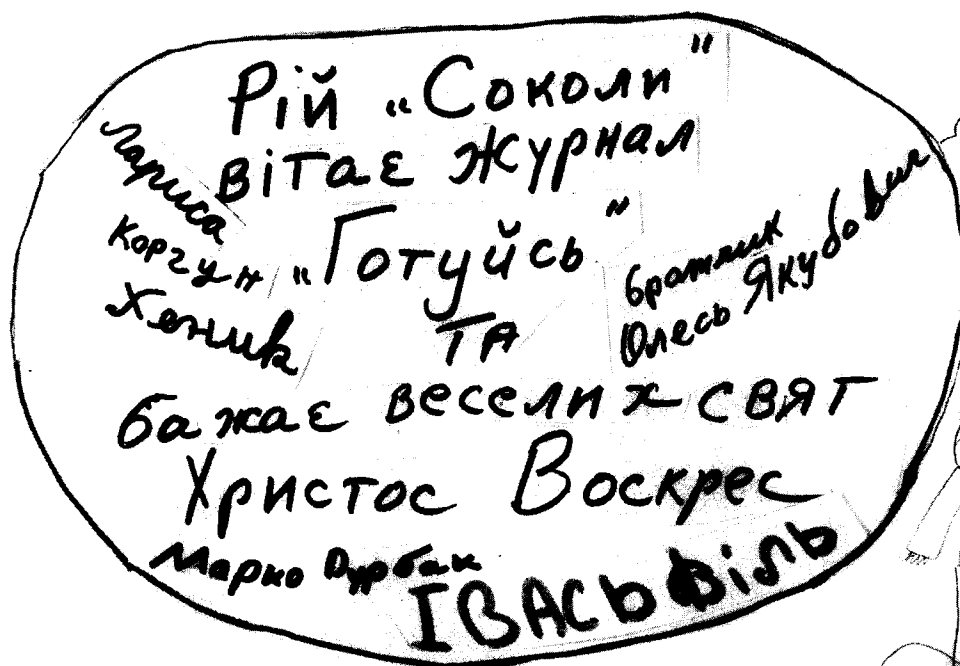 Рій „Соколи”
вітає журнал
„Готуйсь”
та
бажає веселих свят
Христос Воскрес
Лариса
Коргун
Хеник
братчик
Олесь Якубович
Марко Дурбак
ІВАСЬ Філь